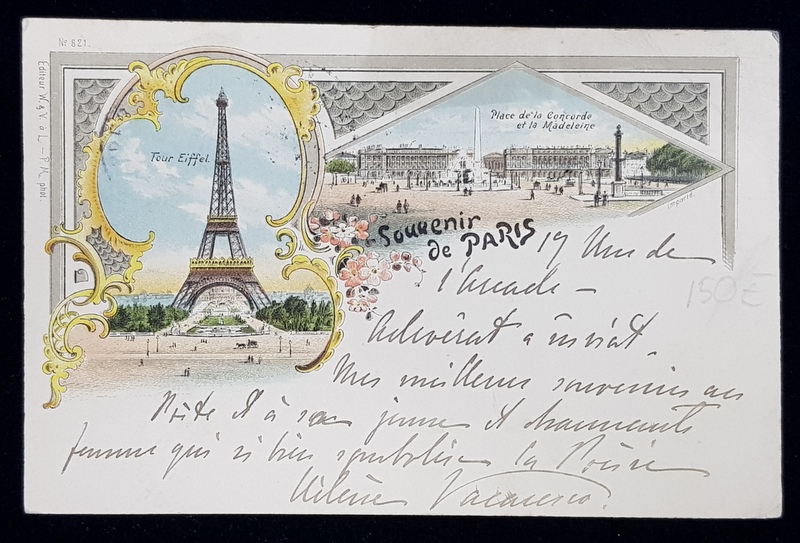 Nr 821.
Editeur W. & V. a L. — P. K. phot.
Tour Eiffel.
Place de la Concorde
et la Madeleine
Importé
Souvenir
de PARIS
19 Rue de
l'Arcade —
Adevērat a înviat.
Mes meilleurs souvenirs au
Poète et à sa jeune et charmante
femme qui si bien symbolise la Poésie
Hélène Vacaresco.
150E